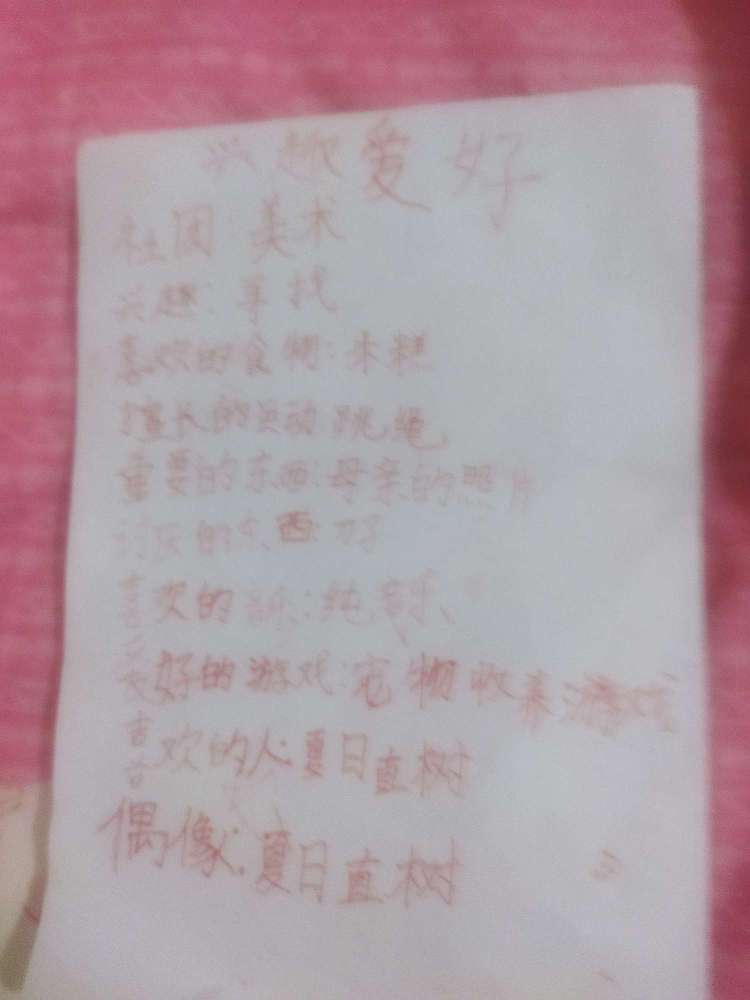 兴趣爱好
社团 美术
兴趣: 寻找
喜欢的食物: 米糕
擅长的运动 跳绳
重要的东西: 母亲的照片
讨厌的东西 刀子
喜欢的音乐: 纯音乐、
爱好的游戏: 宠物收养游戏
喜欢的人: 夏日直树
偶像: 夏日直树